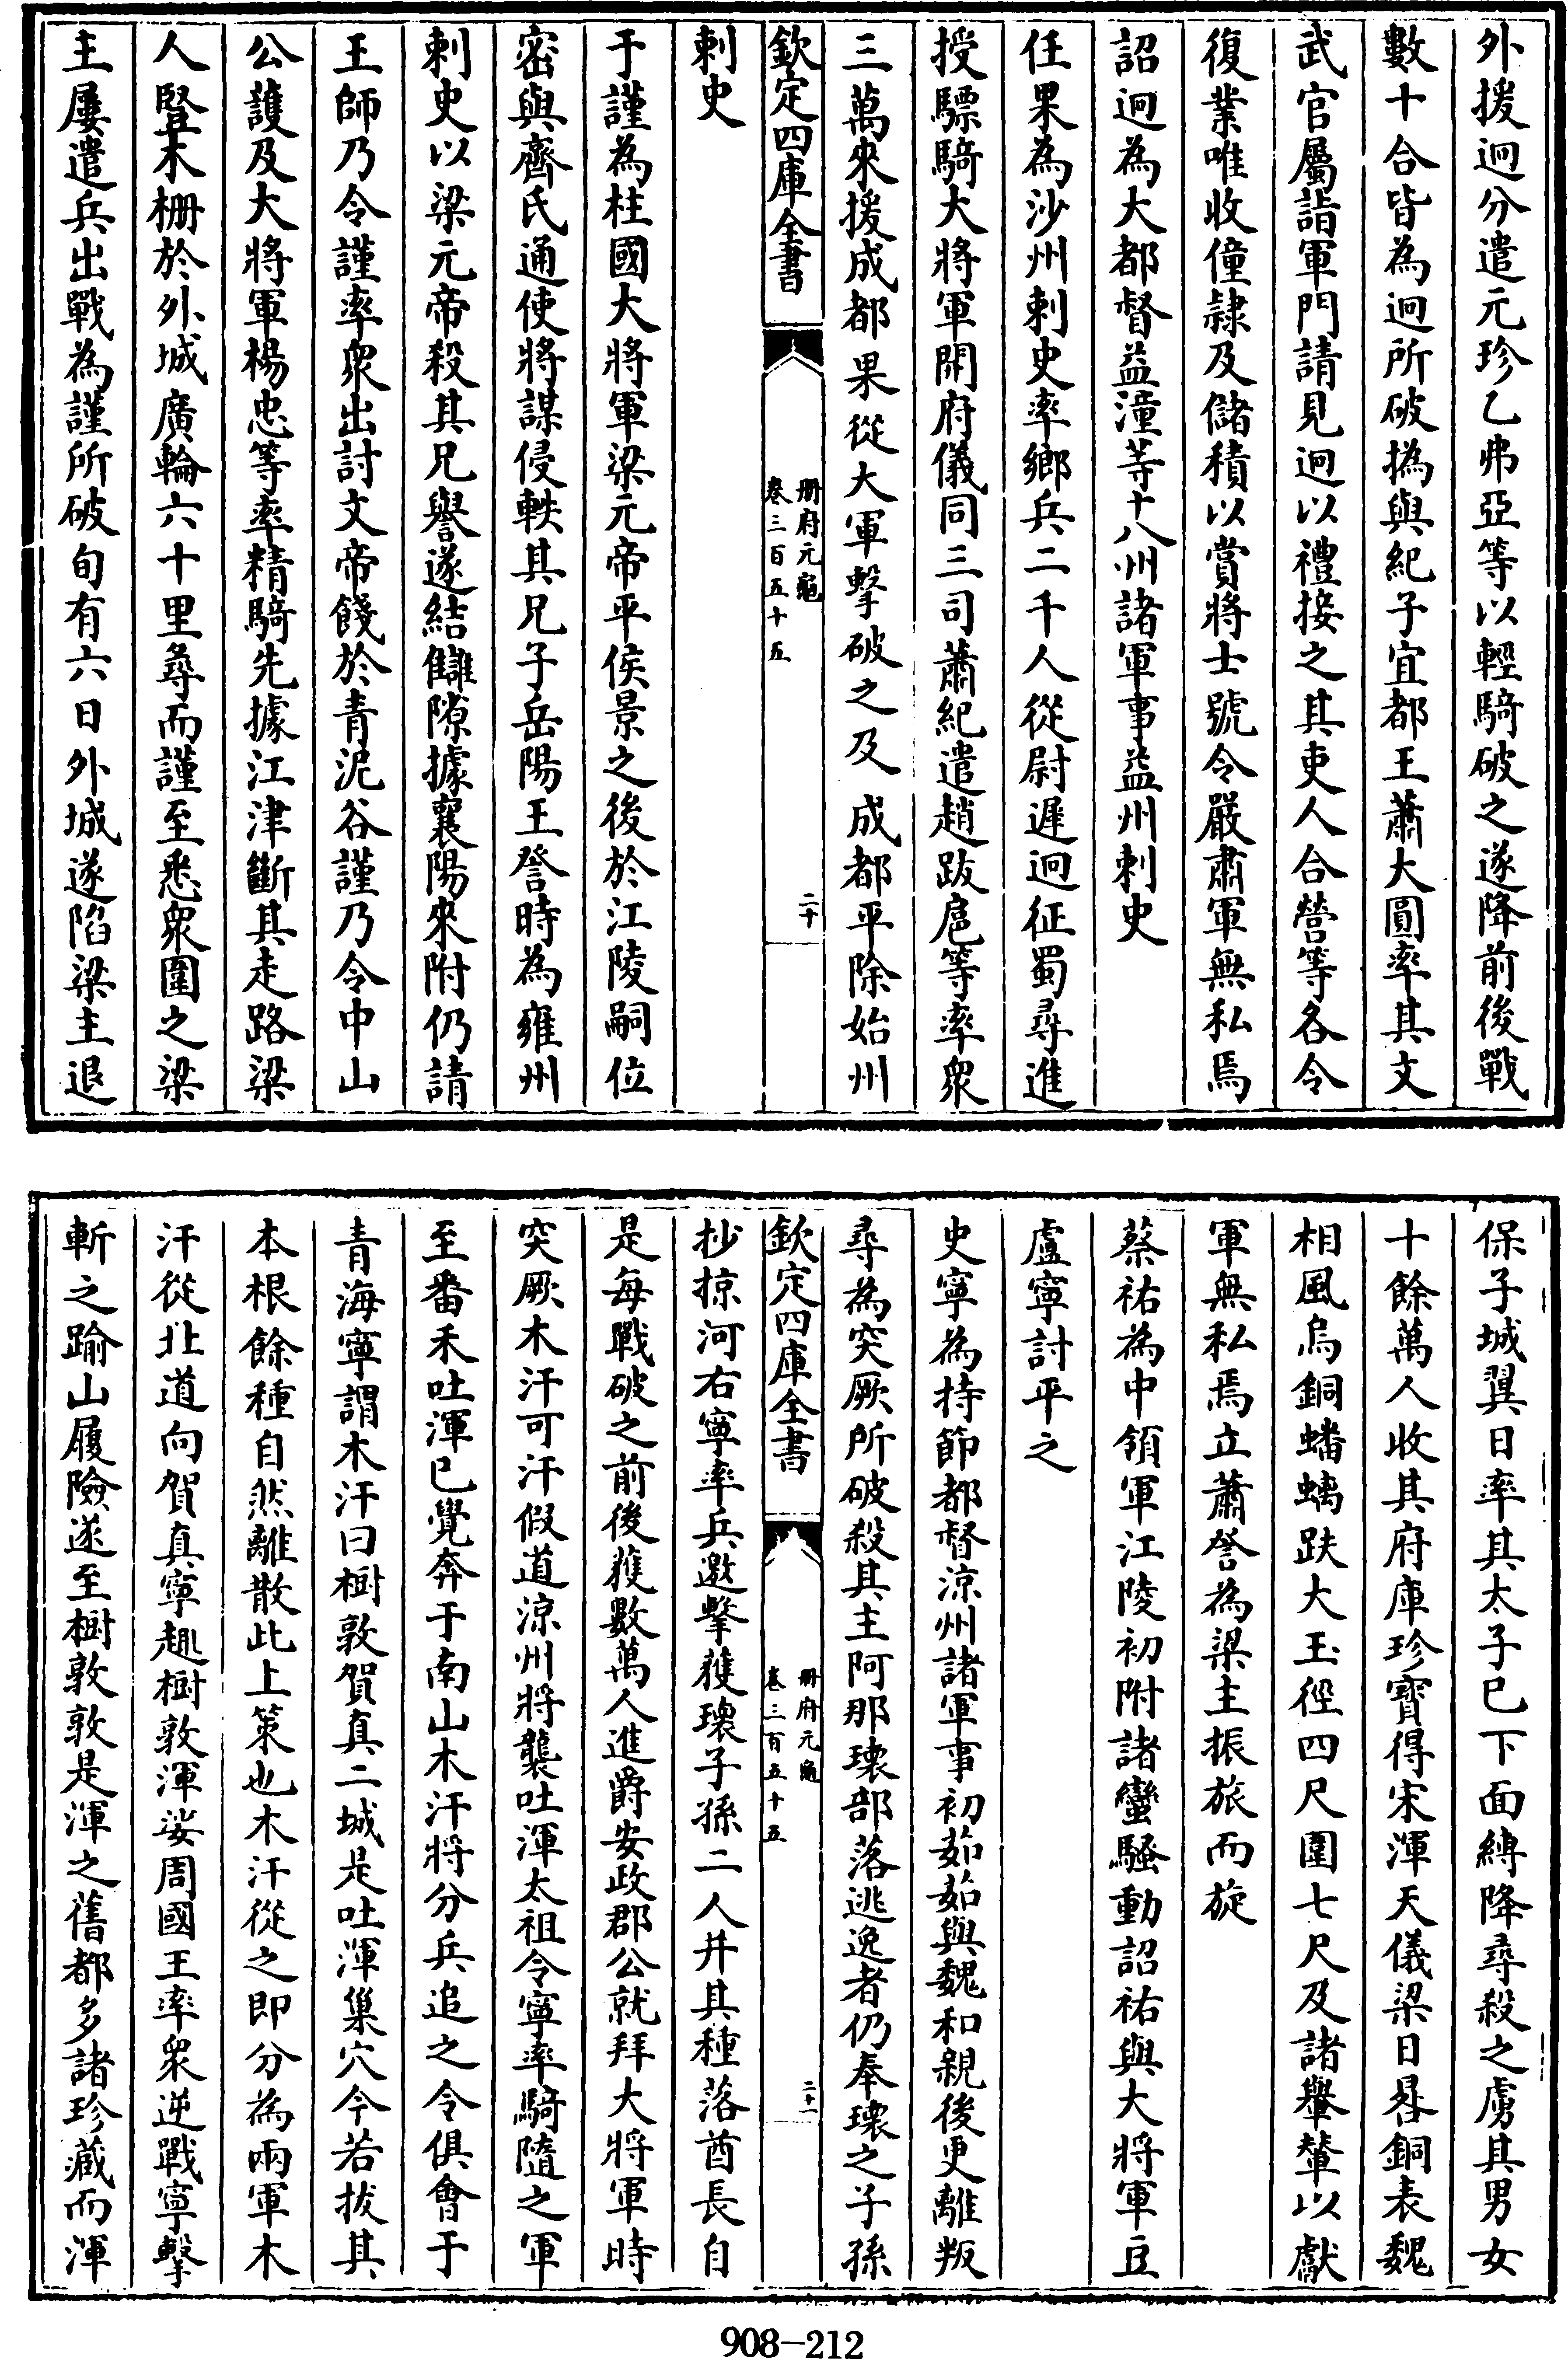 外援迥分遣元珍乙弗亞等以輕騎破之遂降前後戰
數十合皆為迥所破撝與紀子宜都王蕭大圓率其文
武官屬詣軍門請見迥以禮接之其吏人合營等各令
復業唯收僮隷及儲積以賞將士號令嚴肅軍無私焉
詔迥為大都督益潼等十八州諸軍事益州刺史
任果為沙州刺史率鄉兵二千人從尉遲迥征蜀尋進
授驃騎大將軍開府儀同三司蕭紀遣趙跋扈等率衆
三萬來援成都果從大軍擊破之及成都平除始州
欽定四庫全書
冊府元龜
卷三百五十五
二十
刺史
于謹為柱國大將軍梁元帝平侯景之後於江陵嗣位
密與齊氏通使將謀侵軼其兄子岳陽王詧時為雍州
刺史以梁元帝殺其兄譽遂結讎隙據襄陽來附仍請
王師乃令謹率衆出討文帝餞於青泥谷謹乃令中山
公護及大將軍楊忠等率精騎先據江津斷其走路梁
人竪木柵於外城廣輪六十里尋而謹至悉衆圍之梁
主屢遣兵出戰為謹所破旬有六日外城遂陷梁主退
保子城翼日率其太子已下面縛降尋殺之虜其男女
十餘萬人收其府庫珍寶得宋渾天儀梁日晷銅表魏
相風烏銅蟠螭趺大玉徑四尺圍七尺及諸轝輦以獻
軍無私焉立蕭詧為梁主振旅而旋
蔡祐為中領軍江陵初附諸蠻騷動詔祐與大將軍豆
盧寧討平之
史寧為持節都督涼州諸軍事初茹茹與魏和親後更離叛
尋為突厥所破殺其主阿那瓌部落逃逸者仍奉瓌之子孫
欽定四庫全書
冊府元龜
卷三百五十五
二十一
抄掠河右寧率兵邀擊獲瓌子孫二人并其種落酋長自
是每戰破之前後獲數萬人進爵安政郡公就拜大將軍時
突厥木汗可汗假道涼州將襲吐渾太祖令寧率騎隨之軍
至番禾吐渾已覺奔于南山木汗將分兵追之令俱會于
青海寧謂木汗曰樹敦賀真二城是吐渾巢穴今若拔其
本根餘種自然離散此上策也木汗從之即分為兩軍木
汗從北道向賀真寧趣樹敦渾娑周國王率衆逆戰寧擊
斬之踰山履險遂至樹敦敦是渾之舊都多諸珍藏而渾
908-212